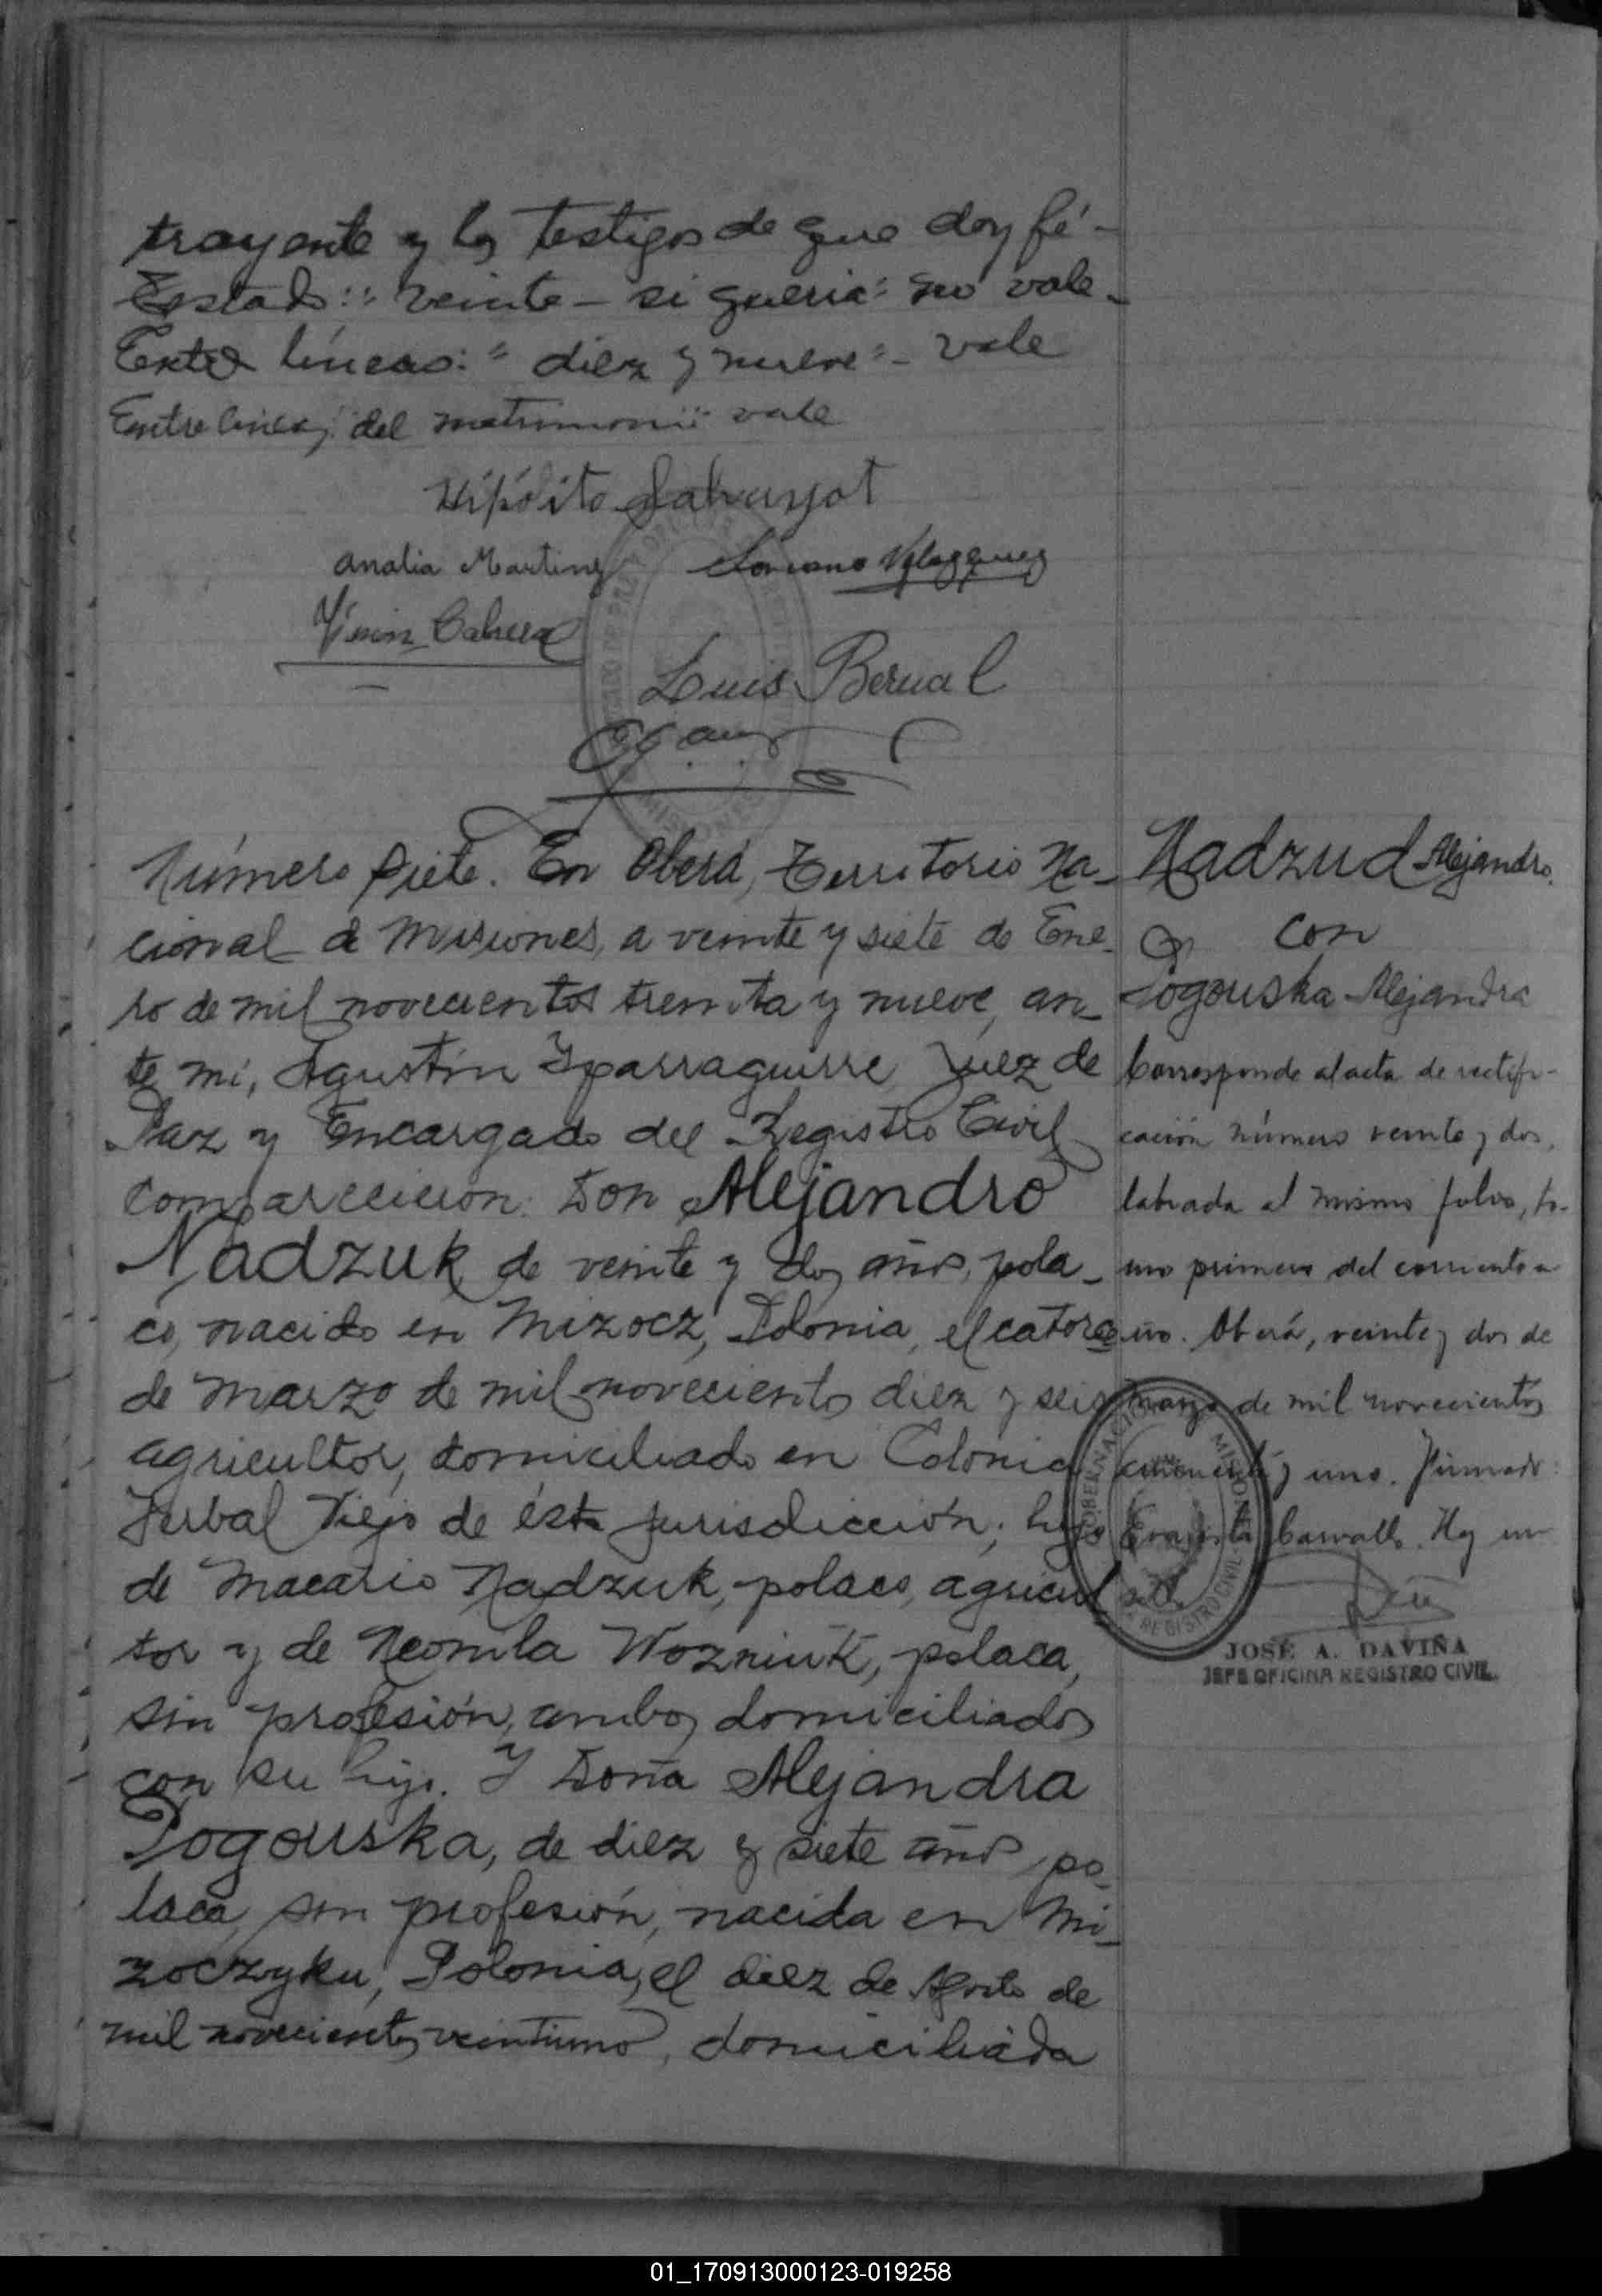 trayente y los testigos de que doy fé-
Testado: "veinte - si queria" no vale-
Entre líneas: "diez y nueve" - vale
Entre lineas: "del matrimonio" vale
Hipólito
Analia Martinez Velazquez
Cabrera
Luis Bernal
Número siete. En Oberá, Territorio Na-
cional de Misiones, a veinte y siete de Ene-
ro de mil novecientos treinta y nueve, an-
te mi, Agustín Yparraguirre Juez de
Paz y Encargado del Registro Civil
comparecieron: Don Alejandro
Nadzuk de veinte y dos años, pola-
co, nacido en Mizocz, Polonia, el catorce
de Marzo de mil novecientos diez y seis
agricultor, domiciliado en Colonia
Yerbal Viejo de ésta jurisdicción; hijo
de Macario Nadzuk, polaco, agricul-
tor y de Neonila Wozniuk, polaca,
sin profesión, ambos domiciliados
con su hijo. Y Doña Alejandra
Pogouska, de diez y siete años, po-
laca, sin profesión, nacida en Mi-
zoczyku, Polonia, el diez de de
mil novecientos veintiuno, domiciliada
Nadzud Alejandro
con
Pogouska Alejandra
Corresponde al acta de rectifi-
cación número veinte y dos,
labrada al mismo folio, to-
mo primero del corriente a-
ño. Oberá, veinte y dos de
marzo de mil novecientos
cincuenta y uno. Firmado:
Evaristo Carvallo. Hay un
sello.
GOBERNACION MISIONES
REGISTRO CIVIL
JOSÉ A. DAVIÑA
JEFE OFICINA REGISTRO CIVIL
01_170913000123-019258